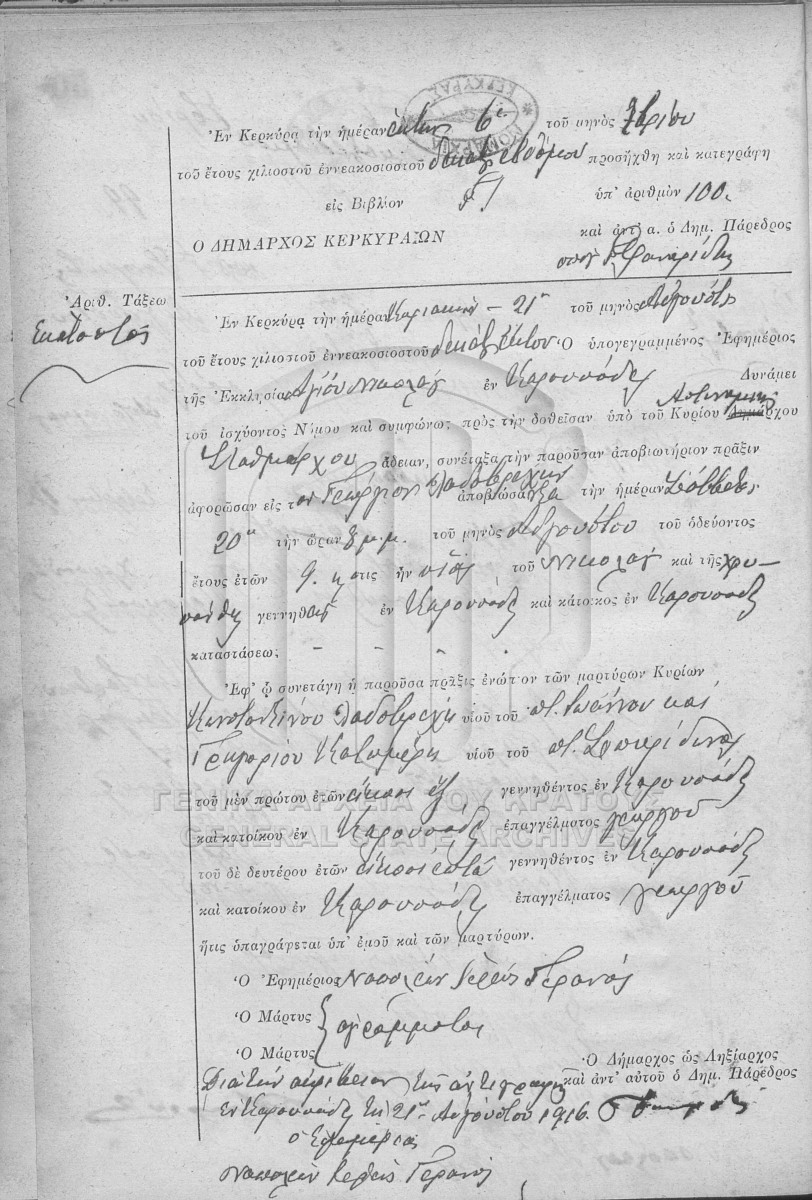 Ἐν Κερκύρᾳ τὴν ἡμέραν ἕκτην 6η τοῦ μηνὸς 7βρίου
τοῦ ἔτους χιλιοστοῦ ἐννεακοσιοστοῦ δεκάτου ἑβδόμου προσήχθη καὶ κατεγράφη
εἰς Βιβλίον ὑπ' ἀριθμὸν 100.
Ο ΔΗΜΑΡΧΟΣ ΚΕΡΚΥΡΑΙΩΝ
καὶ ἀντ' α. ὁ Δημ. Πάρεδρος
Ἀριθ. Τάξεω
Εκατοστός
Ἐν Κερκύρᾳ τὴν ἡμέραν Κυριακὴν - 21η τοῦ μηνὸς Αὐγούστου
τοῦ ἔτους χιλιοστοῦ ἐννεακοσιοστοῦ δεκάτου ἕκτου Ὁ ὑπογεγραμμένος Ἐφημέριος
τῆς Ἐκκλησίας Ἁγίου Νικολάου ἐν Καρουσάδες Δυνάμει
τοῦ ἰσχύοντος Νόμου καὶ συμφώνως πρὸς τὴν δοθεῖσαν ὑπὸ τοῦ Κυρίου Δημάρχου Ἀστυνομικοῦ
Σταθμάρχου ἄδειαν, συνέταξα τὴν παροῦσαν ἀποβιωτήριον πρᾶξιν
ἀφορῶσαν εἰς τὸν Γεώργιον Βλαδοβράχην ἀποβιώσαντα τὴν ἡμέραν Σάββατον
20η τὴν ὥραν 8 μ.μ. τοῦ μηνὸς Αὐγούστου τοῦ ὁδεύοντος
ἔτους ἐτῶν 9. ὅστις ἦν υἱὸς τοῦ Νικολάου καὶ τῆς Χρυ-
σάνθης γεννηθεὶς ἐν Καρουσάδες καὶ κάτοικος ἐν Καρουσάδες
καταστάσεως - - - -
Ἐφ' ᾧ συνετάγη ἡ παροῦσα πρᾶξις ἐνώπιον τῶν μαρτύρων Κυρίων
Κωνσταντίνου υἱοῦ τοῦ π. Ἰωάννου καὶ
Γρηγορίου Κατημέρη υἱοῦ τοῦ π. Σπυρίδωνος
τοῦ μὲν πρώτου ἐτῶν εἴκοσι ἓξ γεννηθέντος ἐν Καρουσάδες
καὶ κατοίκου ἐν Καρουσάδες ἐπαγγέλματος γεωργοῦ
τοῦ δὲ δευτέρου ἐτῶν εἴκοσι ἑπτὰ γεννηθέντος ἐν Καρουσάδες
καὶ κατοίκου ἐν Καρουσάδες ἐπαγγέλματος γεωργοῦ
ἥτις ὑπαγράφεται ὑπ' ἐμοῦ καὶ τῶν μαρτύρων.
Ὁ Ἐφημέριος Ναπολέων Ἱερεὺς Γερανός
Ὁ Μάρτυς
Ὁ Μάρτυς ἀγράμματοι
Ὁ Δήμαρχος ὡς Ληξίαρχος
καὶ ἀντ' αὐτοῦ ὁ Δημ. Πάρεδρος
Διὰ τὴν ἀκρίβειαν τῆς ἀντιγραφῆς
Ἐν Καρουσάδες τῇ 21η Αὐγούστου 1916.
ὁ Ἐφημέριος
Ναπολέων Ἱερεὺς Γερανός
ΓΕΝΙΚΑ ΑΡΧΕΙΑ ΤΟΥ ΚΡΑΤΟΥΣ
GENERAL STATE ARCHIVES